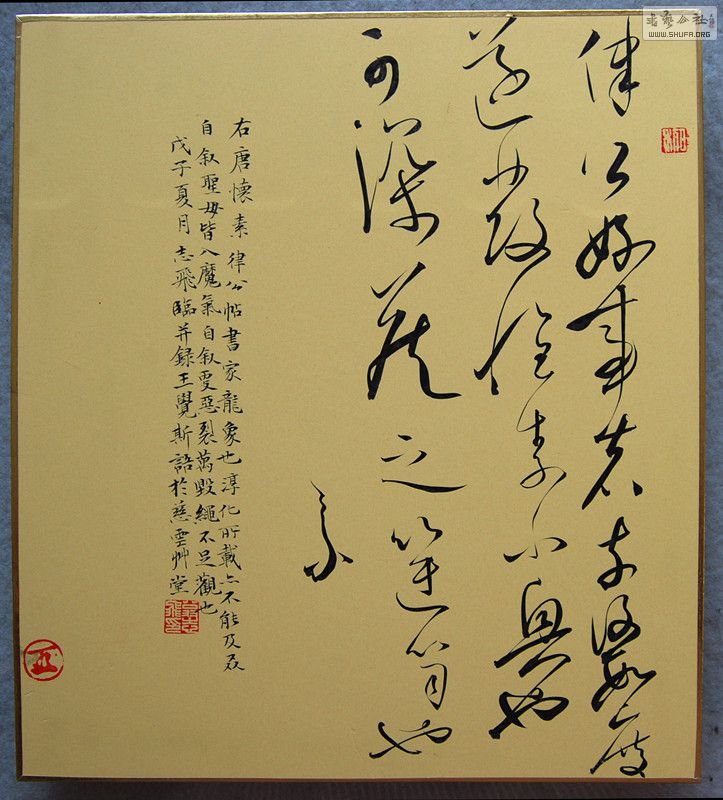 律公好事者前後數度
遂發懷素小興也
可深藏之篋笥也
素
右唐懷素律公帖書家龍象也淳化所載亦不能及若
自叙聖母皆入魔氣自叙更惡裂萬毀繩不足觀也
戊子夏月志飛臨并録王覺斯語於慈雲艸堂
書藝公社
WWW.SHUFA.ORG